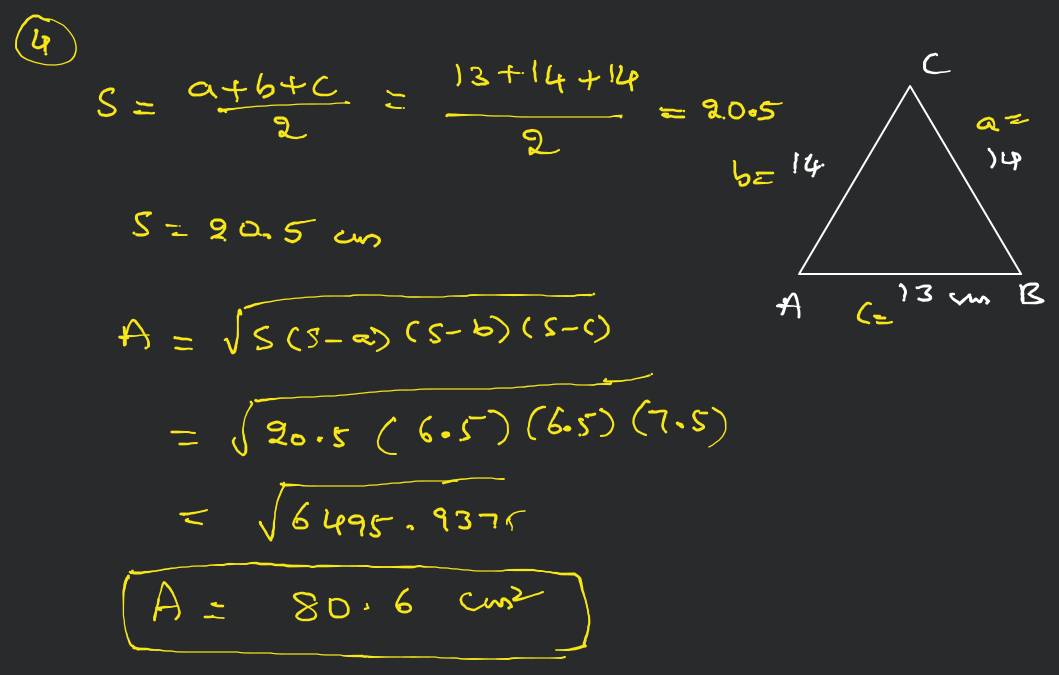 4
S = a+b+c / 2 = 13+14+14 / 2 = 20.5
S = 20.5 cms
A = √S(S-a)(S-b)(S-c)
= √20.5 (6.5) (6.5) (7.5)
= √6495.9375
A = 80.6 cms²
C
a =
14
b = 14
A c = 13 cms B